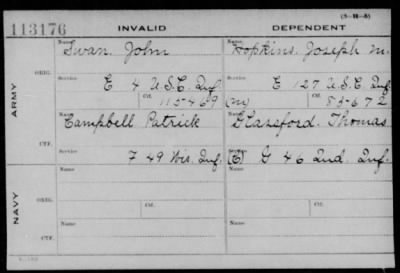 (5-M-8)
113176 INVALID DEPENDENT
Name Name
Swan, John Hopkins, Joseph M.
ORIG. Service Service
E 4 U.S.C. Inf. E 127 U.S.C. Inf.
Ctf. Ctf.
115469 (M) 85672
ARMY
Name Name
Campbell Patrick Glassford. Thomas
CTF. Service Service
F 49 Wis. Inf. (C) G 46 Ind. Inf.
Name Name
ORIG. Ctf. Ctf.
NAVY
Name Name
CTF.